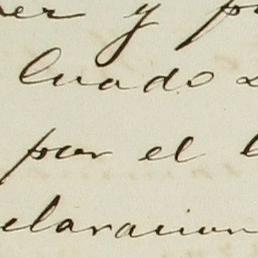 er y p
luado
por el
claracion